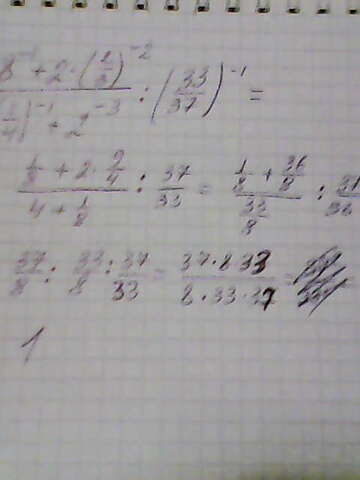 8⁻¹ + 2 · (2/3)⁻² / (1/4)⁻¹ + 2⁻³ : (33/37)⁻¹ =
1/8 + 2 · 9/4 / 4 + 1/8 : 37/33 = 1/8 + 36/8 / 33/8 : 37
37/8 : 33/8 : 37/33 = 37·8 33 / 8·33·37 =
1